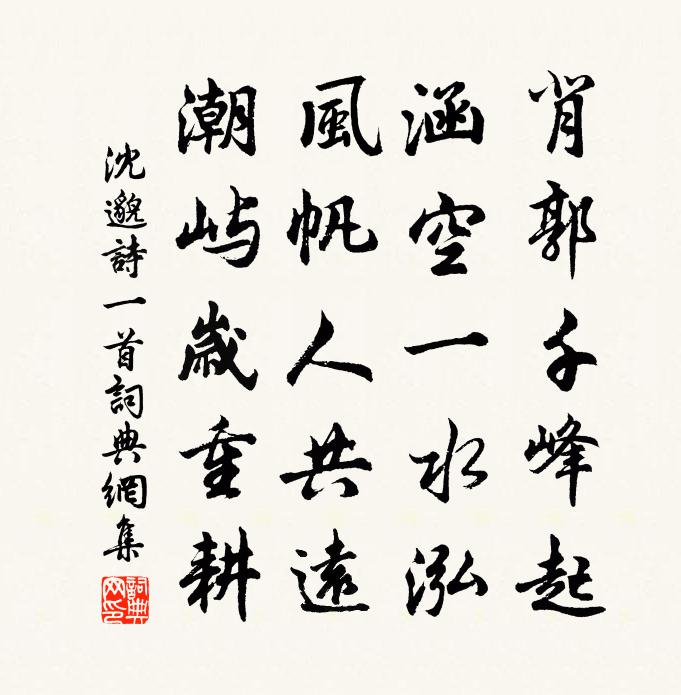 肖郭千峰起
涵空一水泓
風帆人共遠
潮屿歲重耕
沈邈詩一首詞典網集
詞典网印